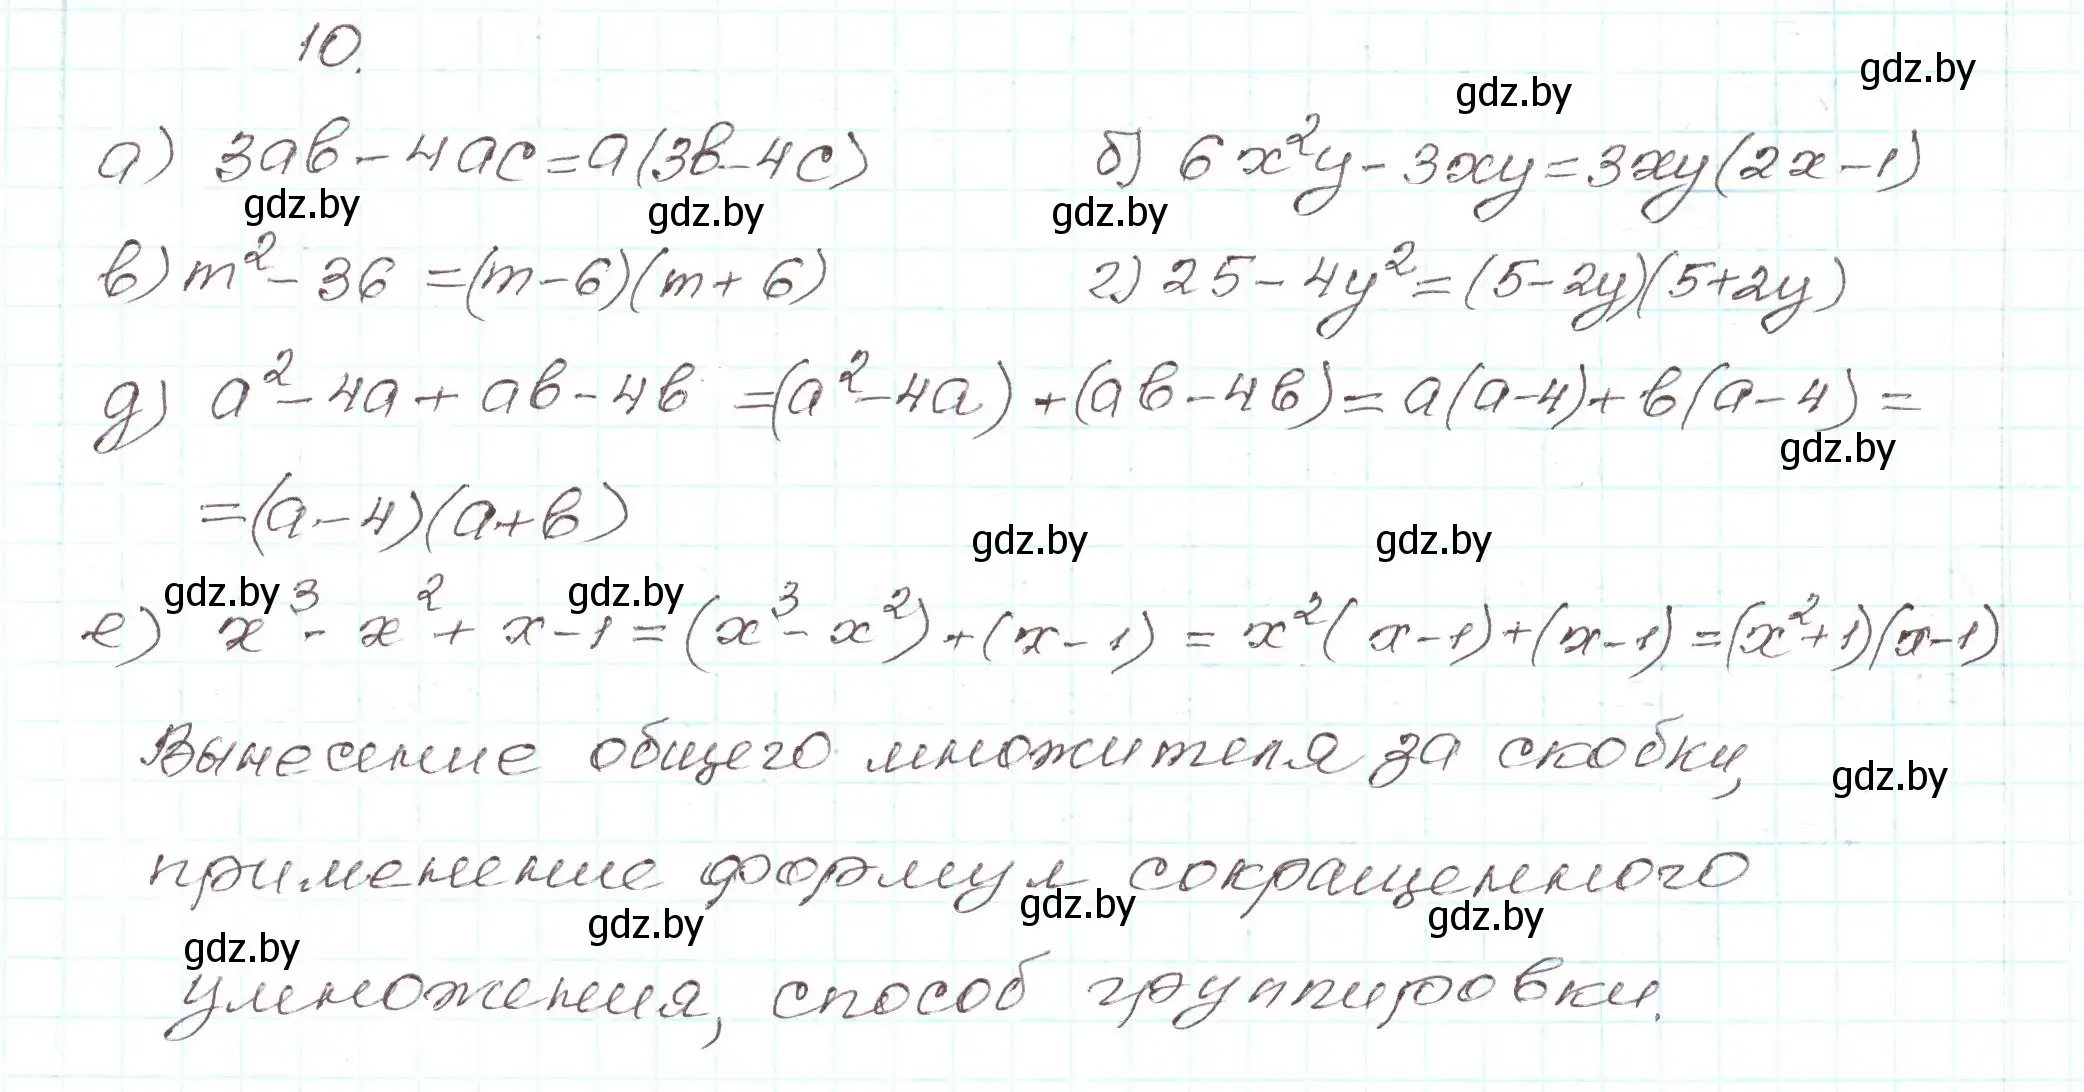 10.
gdz.by
gdz.by
а) 3ab - 4ac = a(3b - 4c) б) 6x²y - 3xy = 3xy(2x - 1)
gdz.by gdz.by gdz.by
в) m² - 36 = (m - 6)(m + 6) г) 25 - 4y² = (5 - 2y)(5 + 2y)
д) a² - 4a + ab - 4b = (a² - 4a) + (ab - 4b) = a(a - 4) + b(a - 4) =
gdz.by
= (a - 4)(a + b)
gdz.by gdz.by
gdz.by gdz.by
е) x³ - x² + x - 1 = (x³ - x²) + (x - 1) = x²(x - 1) + (x - 1) = (x² + 1)(x - 1)
Вынесение общего множителя за скобку,
gdz.by
применение формул сокращенного
gdz.by gdz.by gdz.by gdz.by
умножения, способ группировки.